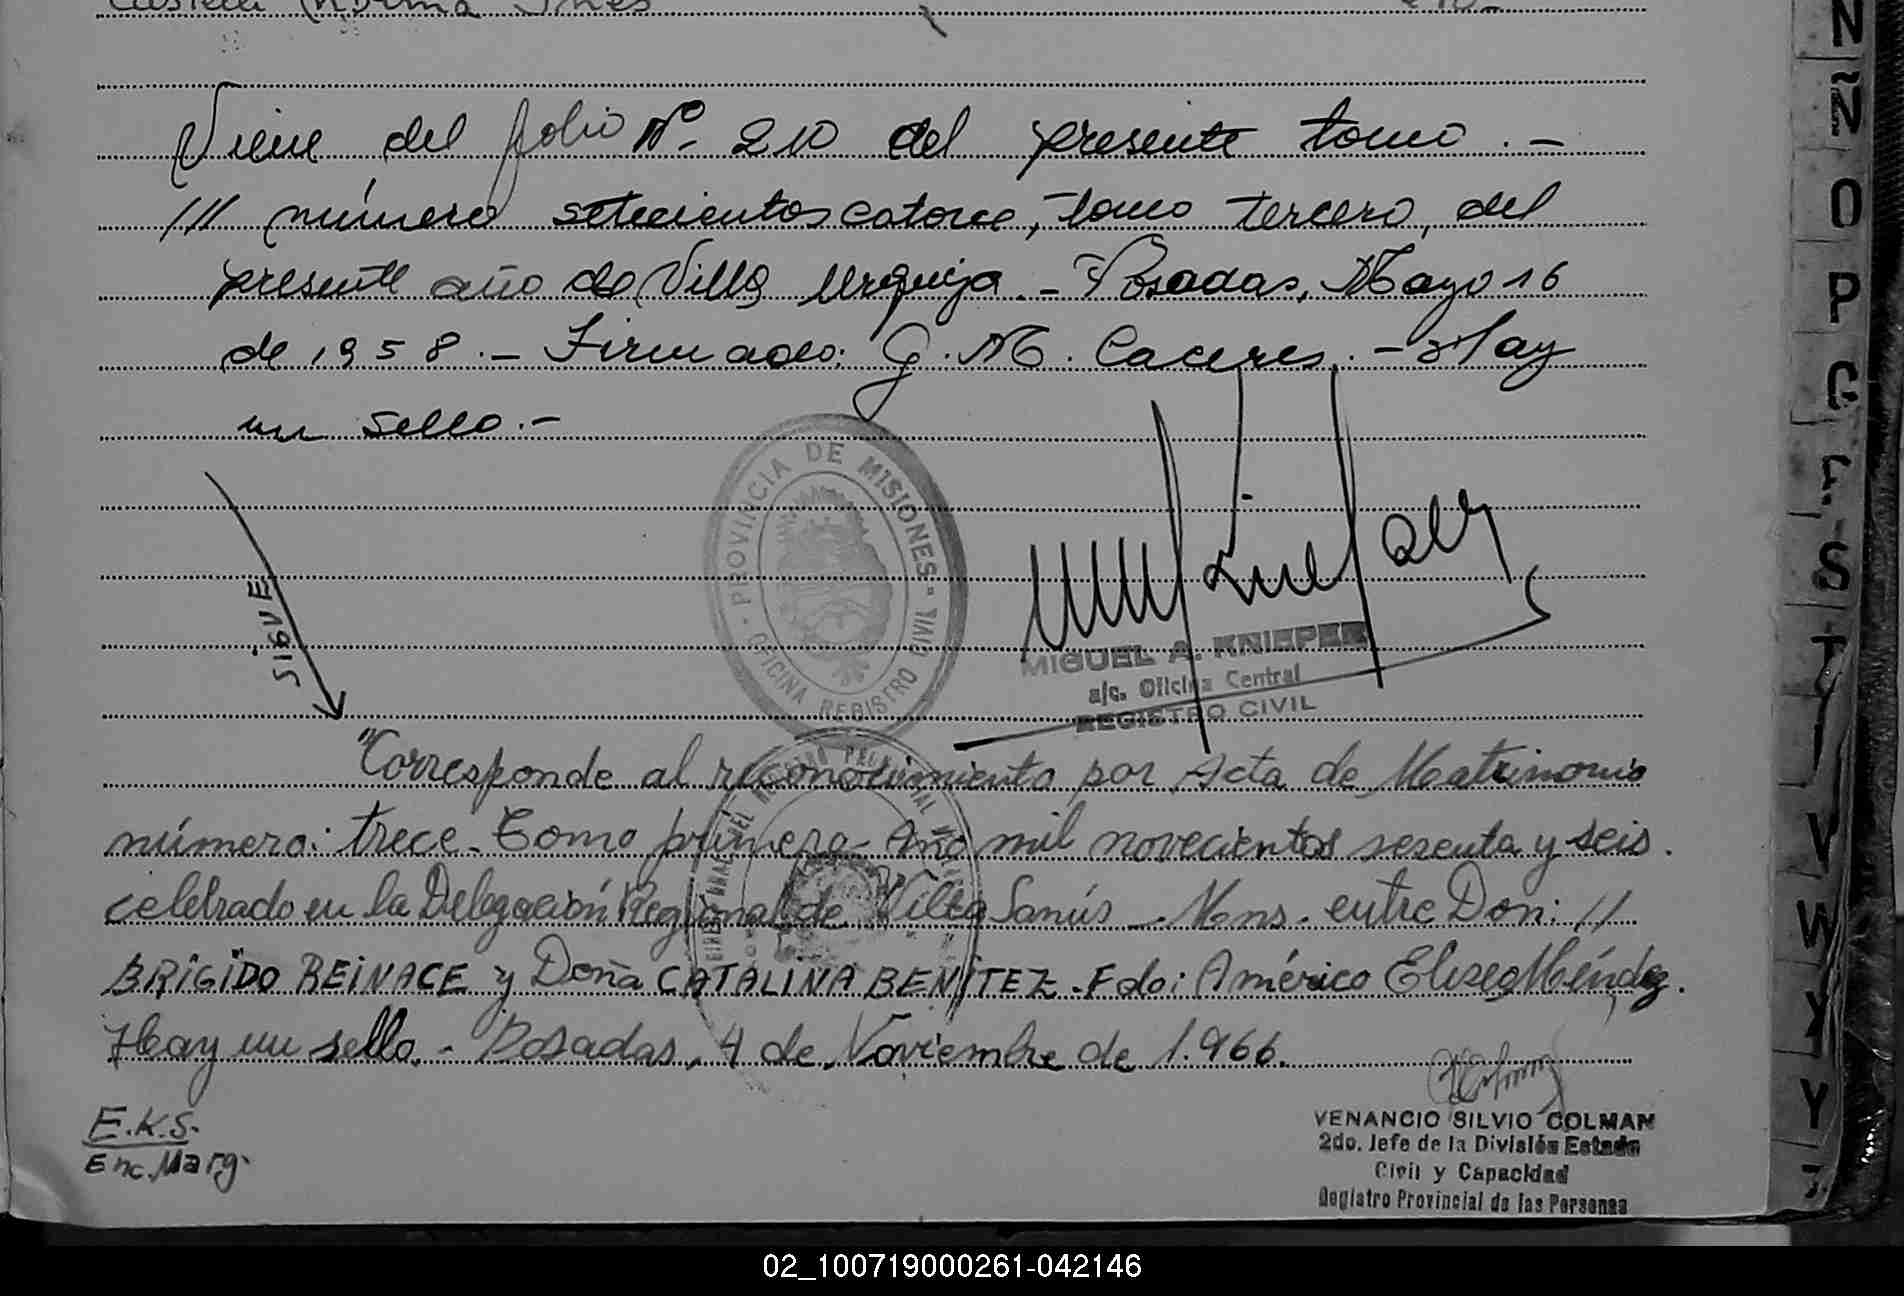 Castelli Norma Inés 210-
Viene del folio Nº- 210 del presente tomo.-
/// número setecientos catorce, tomo tercero, del
presente año de Villa Urquiza.- Posadas, Mayo 16
de 1958.- Firmado: G. M. Caceres.- Hay
un sello.-
PROVINCIA DE MISIONES
OFICINA REGISTRO CIVIL
SigUE
MIGUEL A. KNIEPER
a/c. Oficina Central
REGISTRO CIVIL
"Corresponde al reconocimiento por Acta de Matrimonio
número: trece. Tomo primero. Año mil novecientos sesenta y seis.
celebrado en la Delegación Regional de Villa Sanús - Mns. entre Don: //
BRÍGIDO REINACE y Doña CATALINA BENÍTEZ. Fdo: Américo Eliseo Méndez.
Hay un sello. - Posadas, 4 de Noviembre de 1.966.
E.K.S.
Enc. Marg.
VENANCIO SILVIO COLMAN
2do. Jefe de la División Estado
Civil y Capacidad
Registro Provincial de las Personas
N
Ñ
O
P
S
T
V
W
Y
02_100719000261-042146